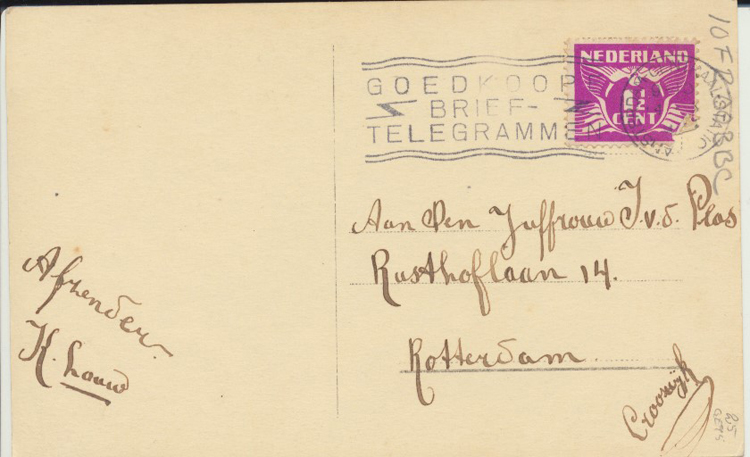 GOEDKOOPE
BRIEF-
TELEGRAMMEN
NEDERLAND
1½
CENT
Aan Den Juffrouw J. v. d. Plas
Rusthoflaan 14.
Rotterdam
Crooswijk
Afzender.
K.